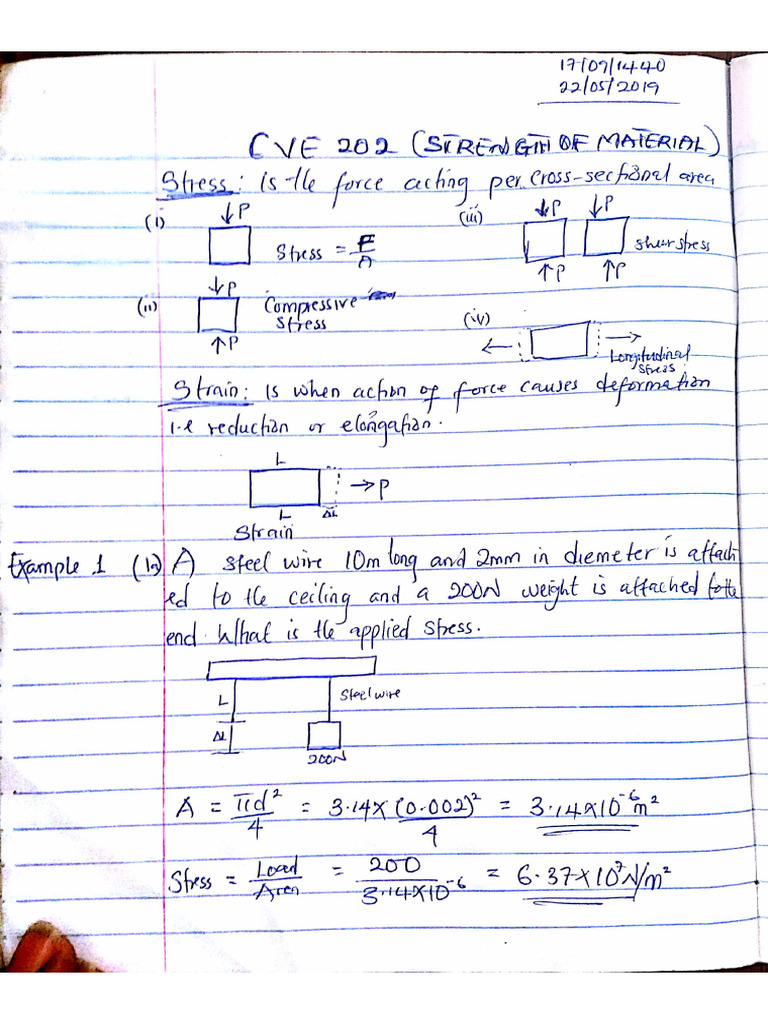 17/09/1440
22/05/2019
CVE 202 (STRENGTH OF MATERIAL)
Stress: is the force acting per cross-sectional area
(i) ↓P
Stress = F/A
(iii) ↓P ↓P
shear stress
↑P ↑P
(ii) ↓P
Compressive
stress
↑P
(iv)
Longitudinal
stress
Strain: is when action of force causes deformation
i.e reduction or elongation.
L
→P
L ΔL
Strain
Example 1 (1a) A steel wire 10m long and 2mm in diemeter is attach
ed to the ceiling and a 200N weight is attached to the
end. What is the applied stress.
L
steel wire
ΔL
200N
A = πd²/4 = 3.14 x (0.002)²/4 = 3.14x10⁻⁶m²
Stress = Load/Area = 200/3.14x10⁻⁶ = 6.37x10⁷N/m²